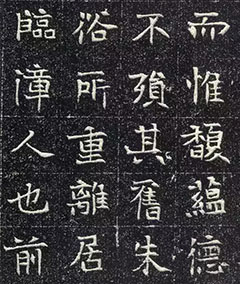 而惟馥蘊德
不殞其舊朱
俗所重離居
臨漳人也前